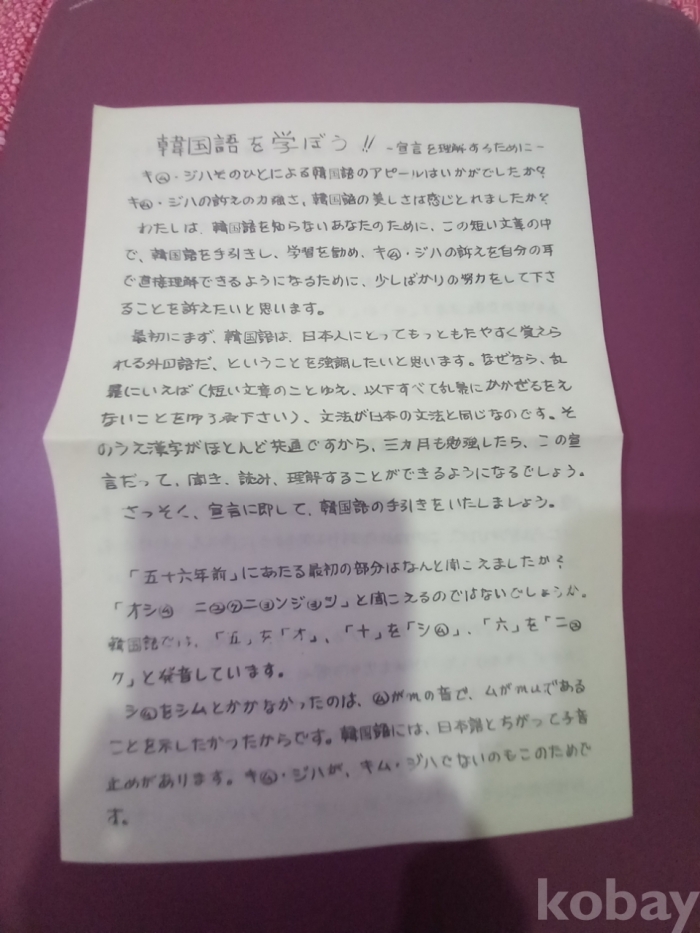 韓国語を学ぼう!! -宣言を理解するために-
キ㋰・ジハそのひとによる韓国語のアピールはいかがでしたか?
キ㋰・ジハの訴えの力強さ、韓国語の美しさは感じとれましたか?
わたしは、韓国語を知らないあなたのために、この短い文章の中
で、韓国語を手引きし、学習を勧め、キ㋰・ジハの訴えを自分の耳
で直接理解できるようになるために、少しばかりの努力をして下さ
ることを訴えたいと思います。
最初にまず、韓国語は、日本人にとってもっともたやすく覚えら
れる外国語だ、ということを強調したいと思います。なぜなら、乱
暴にいえば(短い文章のことゆえ、以下すべて乱暴にかかざるをえ
ないことを御了承下さい)、文法が日本の文法と同じなのです。そ
のうえ漢字がほとんど共通ですから、三ヵ月も勉強したら、この宣
言だって、聞き、読み、理解することができるようになるでしょう。
さっそく、宣言に即して、韓国語の手引きをいたしましょう。
「五十六年前」にあたる最初の部分はなんと聞こえましたか?
「オシ㋰ ニ㋴㋗ニョンジョン」と聞こえるのではないでしょうか。
韓国語では、「五」を「オ」、「十」を「シ㋰」、「六」を「ニ㋴
ク」と発音しています。
シ㋰をシムとかかなかったのは、㋰がmの音で、ムがmuである
ことを示したかったからです。韓国語には、日本語とちがって子音
止めがあります。キ㋰・ジハが、キム・ジハでないのもこのためで
す。
kobay